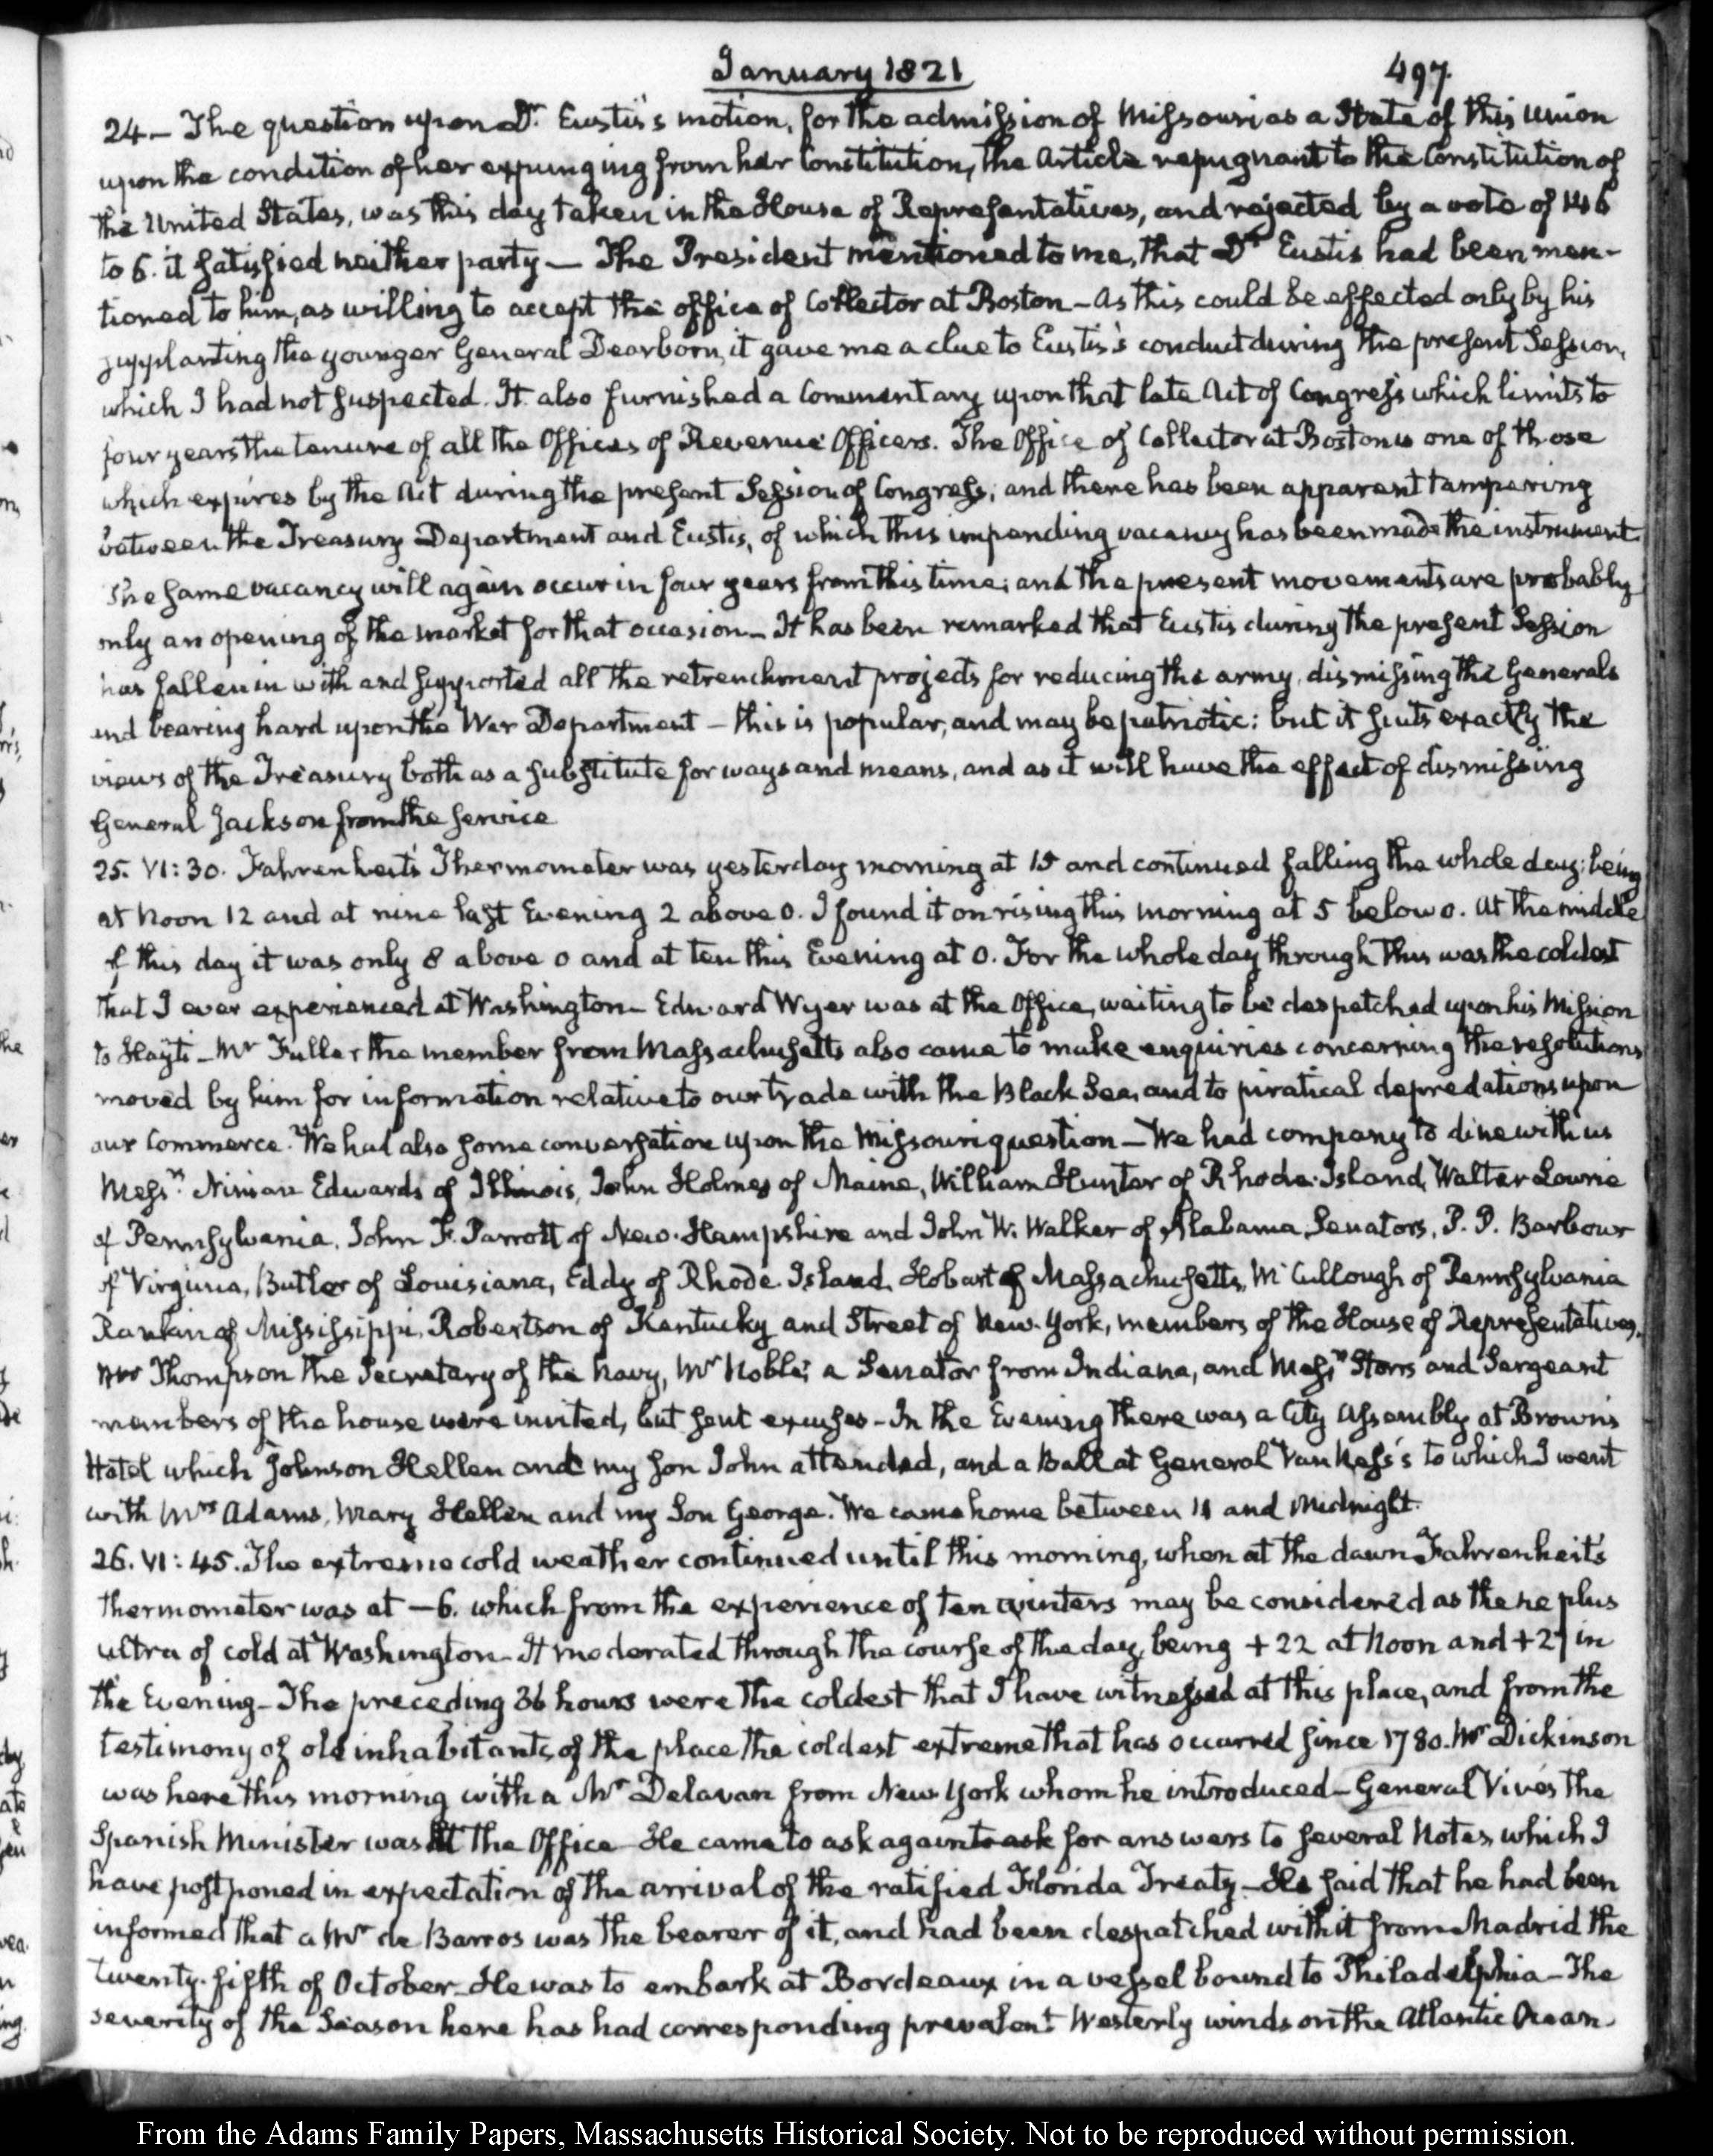 January 1821
497.
24 – The question upon Dr. Eustis's motion, for the admission of Missouri as a State of this Union
upon the condition of her expunging from her Constitution, the Article repugnant to the Constitution of
the United States, was this day taken in the House of Representatives, and rejected by a vote of 146
to 6. it satisfied neither party — The President mentioned to me, that Dr Eustis had been men-
tioned to him, as willing to accept the office of Collector at Boston – As this could be effected only by his
supplanting the younger General Dearborn, it gave me a clue to Eustis's conduct during the present Session,
which I had not suspected. It also furnished a Commentary upon that late Act of Congress which limits to
four years the tenure of all the Offices of Revenue Officers. The Office of Collector at Boston is one of those
which expires by the Act during the present Session of Congress; and there has been apparent tampering
between the Treasury Department and Eustis, of which this impending vacancy has been made the instrument.
The same vacancy will again occur in four years from this time; and the present movements are probably
only an opening of the market for that occasion – It has been remarked that Eustis during the present Session
has fallen in with and supported all the retrenchment projects for reducing the army, dismissing the Generals
and bearing hard upon the War Department – this is popular, and may be patriotic: but it suits exactly the
views of the Treasury both as a substitute for ways and means, and as it will have the effect of dismissing
General Jackson from the service
25. VI:30. Fahrenheit's Thermometer was yesterday morning at 15 and continued falling the whole day; being
at Noon 12 and at nine last Evening 2 above 0. I found it on rising this morning at 5 below 0. At the middle
of this day it was only 8 above 0 and at ten this Evening at 0. For the whole day through this was the coldest
that I ever experienced at Washington – Edward Wyer was at the Office, waiting to be despatched upon his Mission
to Hayti – Mr Fuller the member from Massachusetts also came to make enquiries concerning the resolutions
moved by him for information relative to our trade with the Black Sea, and to piratical depredations upon
our Commerce. We had also some conversation upon the Missouri question – We had company to dine with us
Messrs. Ninian Edwards of Illinois, John Holmes of Maine, William Hunter of Rhode-Island, Walter Lowrie
of Pennsylvania, John F. Parrott of New-Hampshire and John W. Walker of Alabama, Senators, P. P. Barbour
of Virginia, Butler of Louisiana, Eddy of Rhode Island, Hobart of Massachusetts, McCullough of Pennsylvania
Rankin of Mississippi, Robertson of Kentucky and Street of New-York, members of the House of Representatives.
Mr Thompson the Secretary of the Navy, Mr Noble, a Senator from Indiana, and Messrs Storrs and Sergeant
members of the house were invited, but sent excuses – In the Evening there was a City Assembly at Brown's
Hotel which Johnson Hellen and my son John attended, and a Ball at General Van Ness's to which I went
with Mrs Adams, Mary Hellen and my Son George. We came home between 11 and Midnight.
26. VI:45. The extreme cold weather continued until this morning, when at the dawn Fahrenheit's
thermometer was at –6. which from the experience of ten winters may be considered as the ne plus
ultra of cold at Washington – It moderated through the course of the day, being +22 at Noon and +27 in
the Evening – The preceding 36 hours were the coldest that I have witnessed at this place, and from the
testimony of old inhabitants of the place the coldest extreme that has occurred since 1780. Mr Dickinson
was here this morning with a Mr Delavan from New York whom he introduced – General Vivés the
Spanish Minister was at the Office – He came to ask again to ask for answers to several Notes, which I
have postponed in expectation of the arrival of the ratified Florida Treaty – He said that he had been
informed that a Mr de Barros was the bearer of it, and had been despatched with it from Madrid the
twenty-fifth of October – He was to embark at Bordeaux in a vessel bound to Philadelphia – The
severity of the Season here has had corresponding prevalent Westerly winds on the Atlantic Ocean.
From the Adams Family Papers, Massachusetts Historical Society. Not to be reproduced without permission.